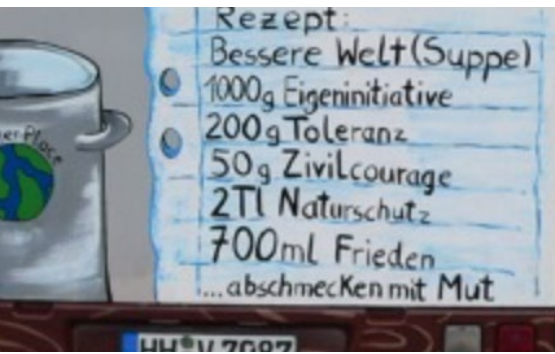 Rezept:
Bessere Welt (Suppe)
1000g Eigeninitiative
200g Toleranz
50g Zivilcourage
2Tl Naturschutz
700ml Frieden
...abschmecken mit Mut
Place